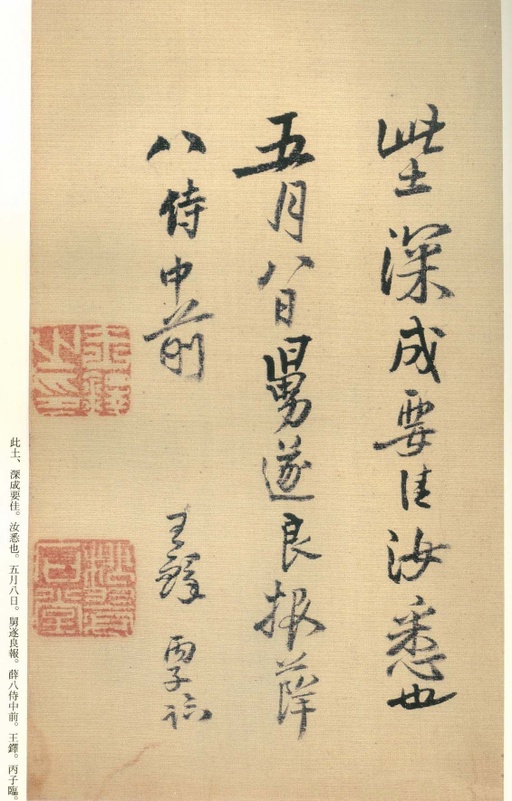 此土深成要佳汝悉也
五月八日舅遂良报薛
八侍中前
王鐸 丙子臨
王鐸之印
此土、深成要佳。汝悉也。五月八日。舅遂良報。薛八侍中前。王鐸。丙子臨。